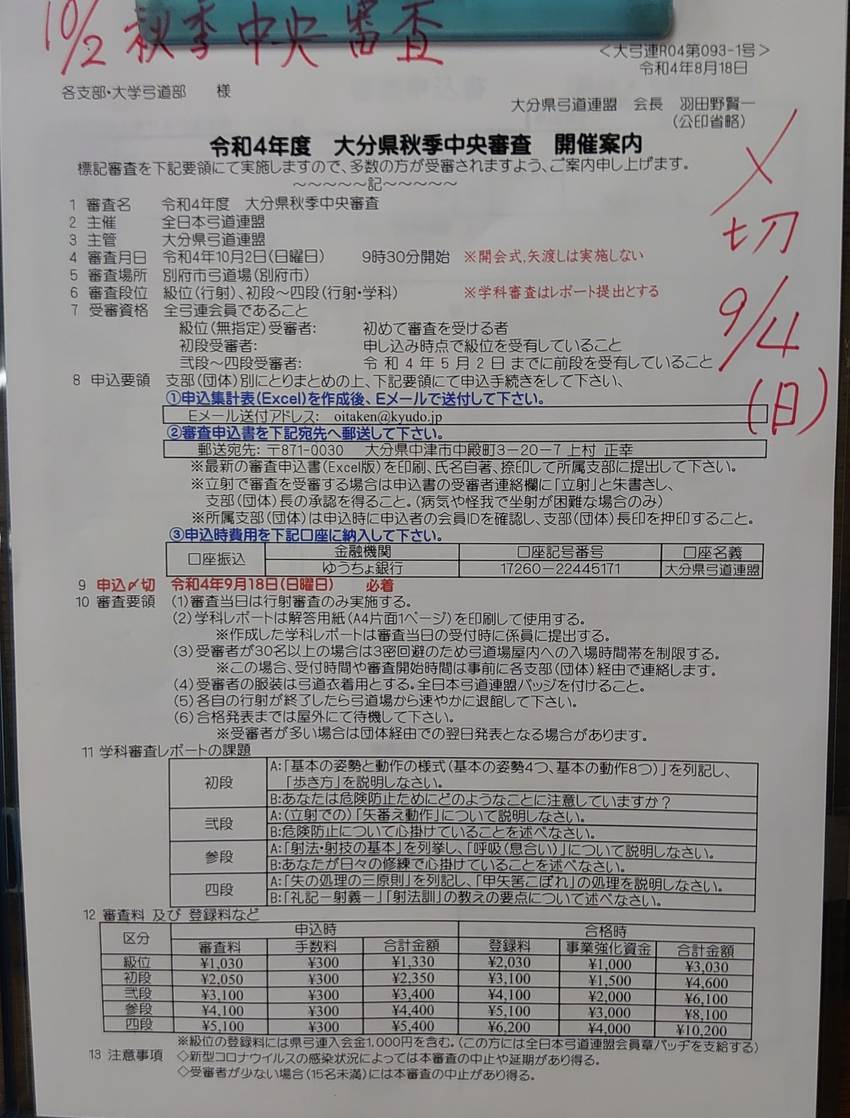 10/2 秋季中央審査
＜大弓連R04第093-1号＞
令和4年8月18日
各支部・大学弓道部　様
大分県弓道連盟　会長　羽田野賢一
（公印省略）
令和4年度　大分県秋季中央審査　開催案内
標記審査を下記要領にて実施しますので、多数の方が受審されますよう、ご案内申し上げます。
～～～～～記～～～～～
〆切 9/4（日）
1 審査名　令和4年度　大分県秋季中央審査
2 主催　全日本弓道連盟
3 主管　大分県弓道連盟
4 審査月日　令和4年10月2日（日曜日）　9時30分開始　※開会式,矢渡しは実施しない
5 審査場所　別府市弓道場（別府市）
6 審査段位　級位（行射）、初段～四段（行射・学科）　※学科審査はレポート提出とする
7 受審資格　全弓連会員であること
級位（無指定）受審者：　初めて審査を受ける者
初段受審者：　申し込み時点で級位を受有していること
弐段～四段受審者：　令和4年5月2日までに前段を受有していること
8 申込要領　支部（団体）別にとりまとめの上、下記要領にて申込手続きをして下さい、
①申込集計表（Excel）を作成後、Eメールで送付して下さい。
Eメール送付アドレス：　oitaken@kyudo.jp
②審査申込書を下記宛先へ郵送して下さい。
郵送宛先：〒871-0030　大分県中津市中殿町3－20－7 上村 正幸
※最新の審査申込書（Excel版）を印刷、氏名自著、捺印して所属支部に提出して下さい。
※立射で審査を受審する場合は申込書の受審者連絡欄に「立射」と朱書きし、
支部（団体）長の承認を得ること。（病気や怪我で坐射が困難な場合のみ）
※所属支部（団体）は申込時に申込者の会員IDを確認し、支部（団体）長印を押印すること。
③申込時費用を下記口座に納入して下さい。
口座振込　金融機関　口座記号番号　口座名義
ゆうちょ銀行　17260－22445171　大分県弓道連盟
9 申込〆切　令和4年9月18日（日曜日）　必着
10 審査要領　（1）審査当日は行射審査のみ実施する。
（2）学科レポートは解答用紙（A4片面1ページ）を印刷して使用する。
※作成した学科レポートは審査当日の受付時に係員に提出する。
（3）受審者が30名以上の場合は3密回避のため弓道場屋内への入場時間帯を制限する。
※この場合、受付時間や審査開始時間は事前に各支部（団体）経由で連絡します。
（4）受審者の服装は弓道衣着用とする。全日本弓道連盟バッジを付けること。
（5）各自の行射が終了したら弓道場から速やかに退館して下さい。
（6）合格発表までは屋外にて待機して下さい。
※受審者が多い場合は団体経由での翌日発表となる場合があります。
11 学科審査レポートの課題
初段　A：「基本の姿勢と動作の様式（基本の姿勢4つ、基本の動作8つ）」を列記し、
「歩き方」を説明しなさい。
B：あなたは危険防止ためにどのようなことに注意していますか？
弐段　A：（立射での）「矢番え動作」について説明しなさい。
B：危険防止について心掛けていることを述べなさい。
参段　A：「射法・射技の基本」を列挙し、「呼吸（息合い）」について説明しなさい。
B：あなたが日々の修練で心掛けていることを述べなさい。
四段　A：「失の処理の三原則」を列記し、「甲矢筈こぼれ」の処理を説明しなさい。
B：「礼記－射義－」「射法訓」の教えの要点について述べなさい。
12 審査料 及び 登録料など
区分　申込時　合格時
審査料　手数料　合計金額　登録料　事業強化資金　合計金額
級位　¥1,030　¥300　¥1,330　¥2,030　¥1,000　¥3,030
初段　¥2,050　¥300　¥2,350　¥3,100　¥1,500　¥4,600
弐段　¥3,100　¥300　¥3,400　¥4,100　¥2,000　¥6,100
参段　¥4,100　¥300　¥4,400　¥5,100　¥3,000　¥8,100
四段　¥5,100　¥300　¥5,400　¥6,200　¥4,000　¥10,200
※級位の登録料には県弓連入会金1,000円を含む。（この方には全日本弓道連盟会員章バッヂを支給する）
13 注意事項　◇新型コロナウイルスの感染状況によっては本審査の中止や延期があり得る。
◇受審者が少ない場合（15名未満）には本審査の中止があり得る。